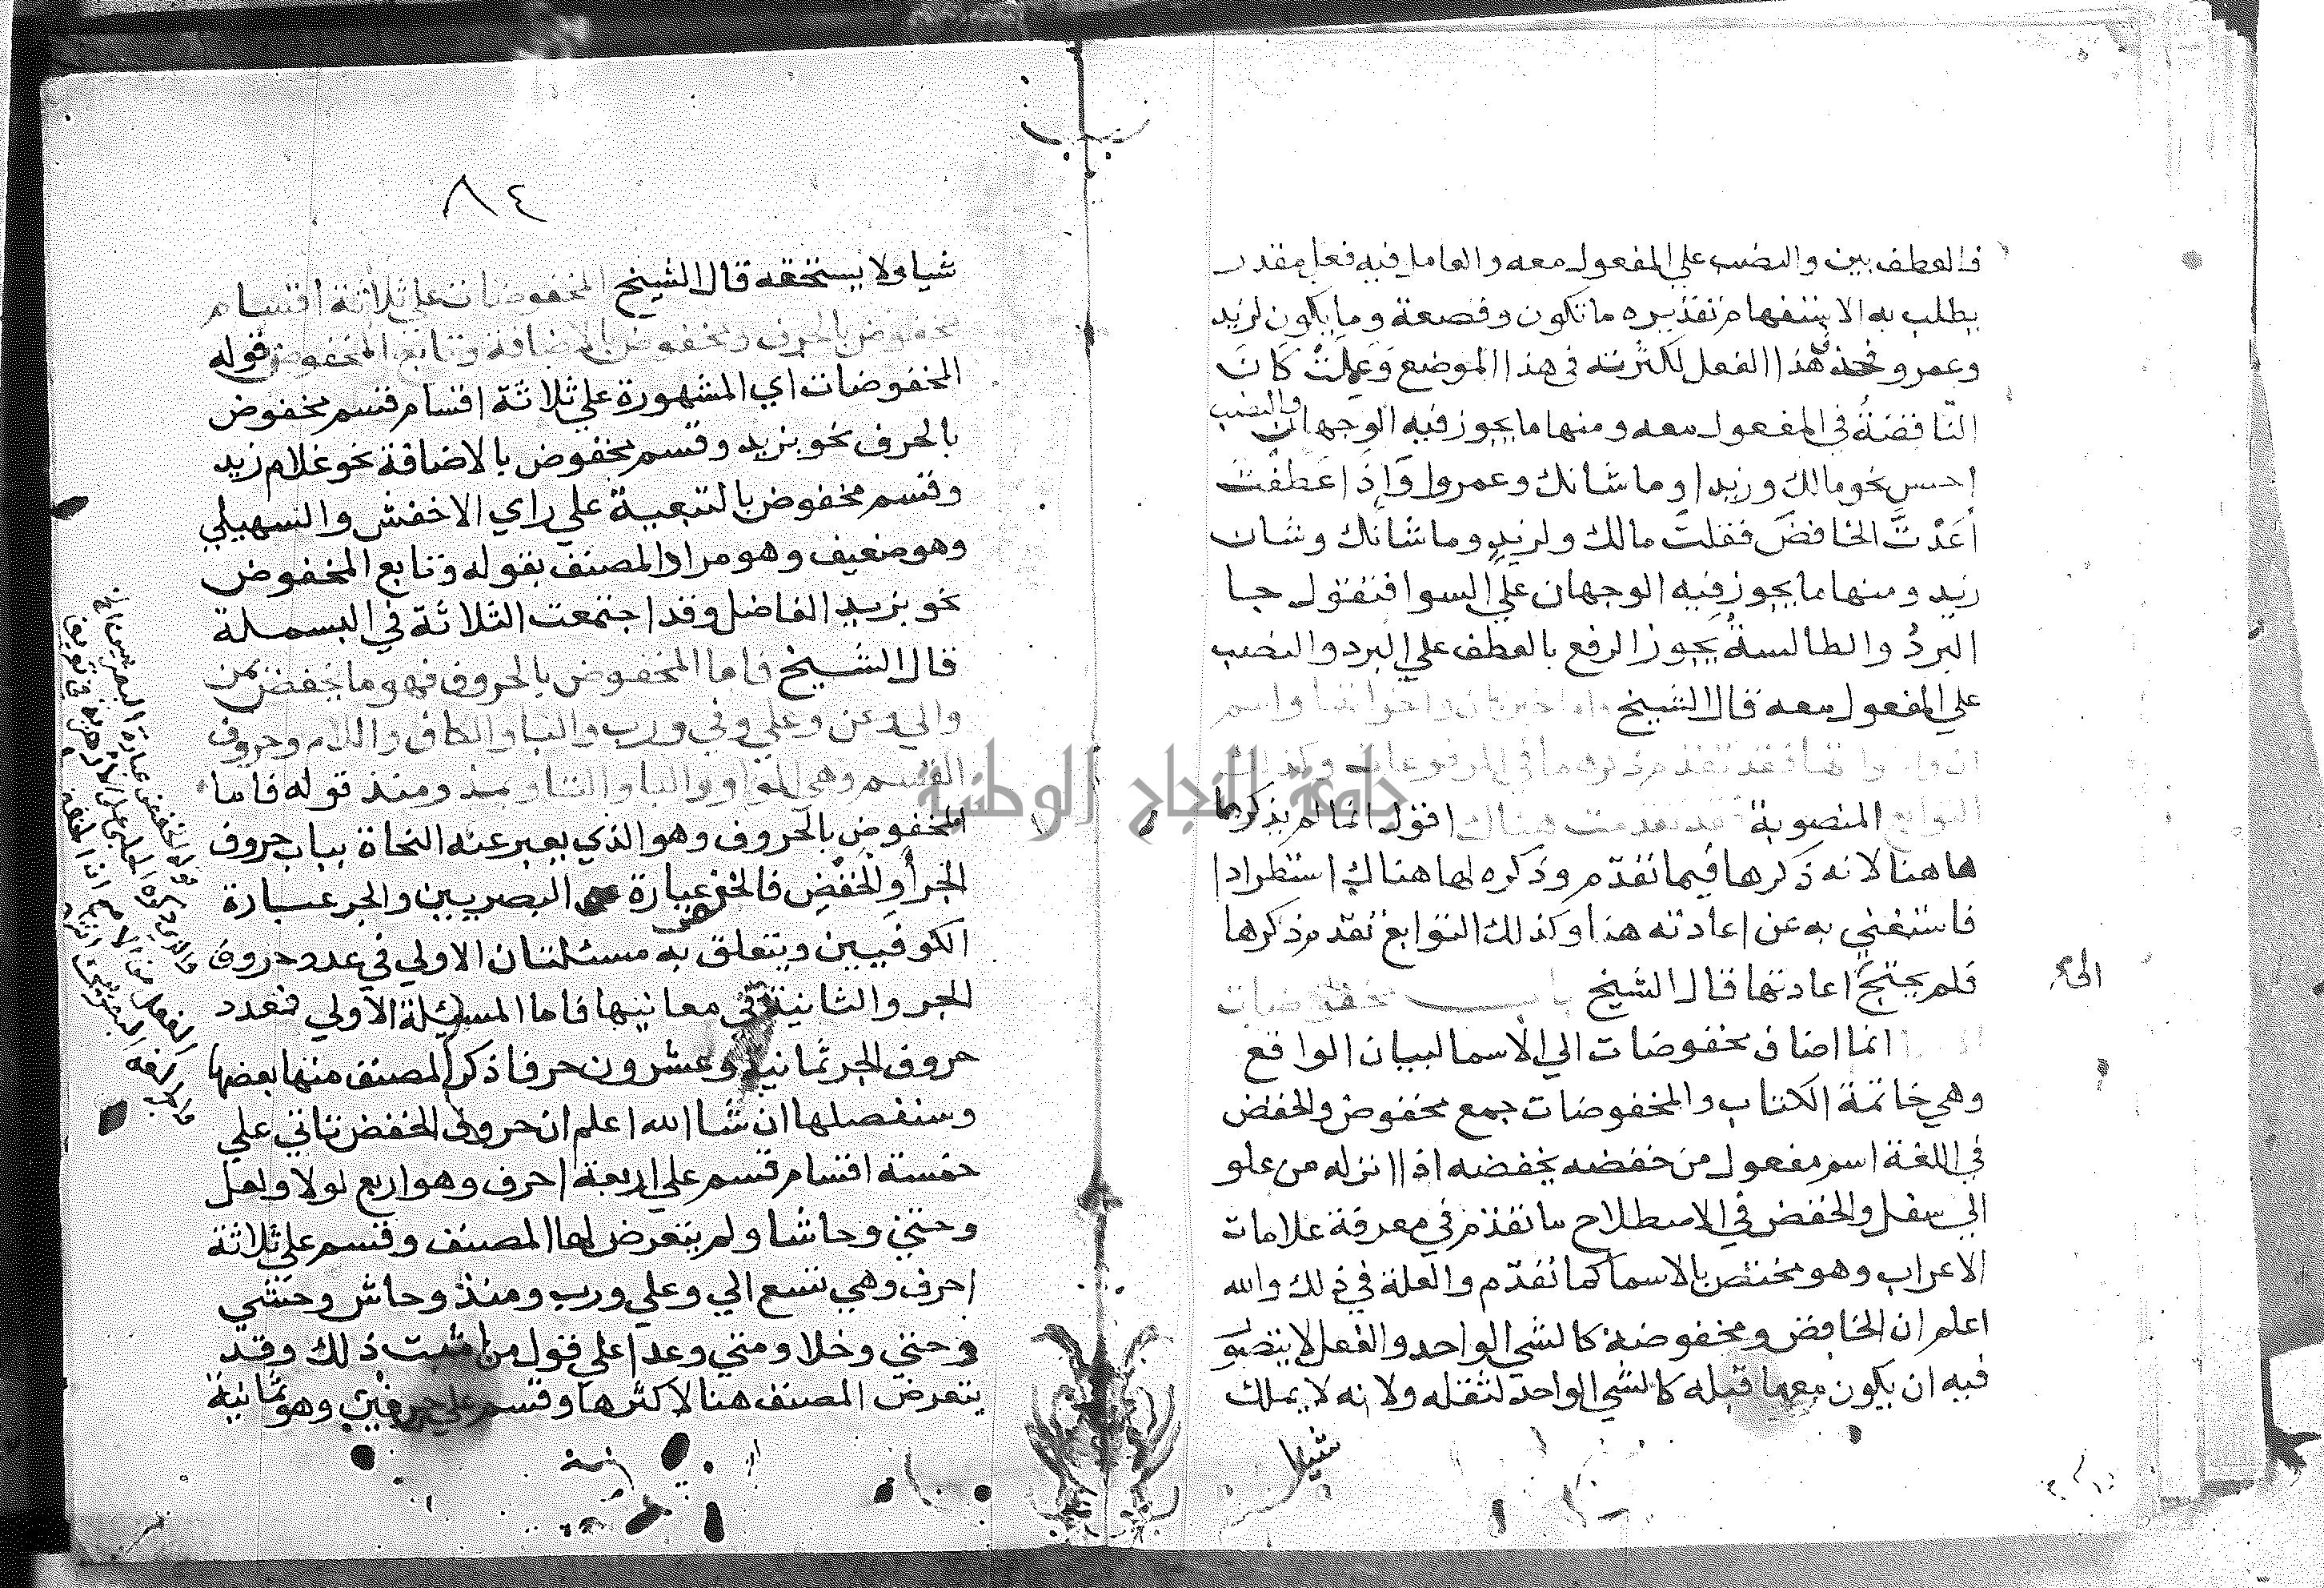 فالعطف بين والنصب علي المفعول معه والعامل فيه فعل مقدر
يطلب به الاستفهام تقديره ما تكون وقصعة وما يكون لزيد
وعمرو فحذف هذا الفعل لكثرته في هذا الموضع وعملت كان
الناقصة في المفعول معه ومنها ما يجوز فيه الوجهان والنصب
احسن نحو مالك وزيدا وما شانك وعمروا وإذا عطفت
أعدت الخافض فقلت مالك ولزيد وما شانك وشان
زيد ومنها ما يجوز فيه الوجهان علي السوا فتقول جا
البرد والطالسة يجوز الرفع بالعطف علي البرد والنصب
علي المفعول معه قال الشيخ واما خبر كان واخواتها واسم
ان واخواتها فقد تقدم ذكرهما في المرفوعات وكذلك
التوابع المنصوبة فقد تقدمت هناك اقول انما لم يذكرها
هاهنا لانه ذكرها فيما تقدم وذكره لها هناك استطرادا
فاستغني به عن اعادته هنا وكذلك التوابع تقدم ذكرها
فلم يحتج اعادتها قال الشيخ باب مخفوضات
انما اضاف مخفوضات الي الاسما لبيان الواقع
وهي خاتمة الكتاب والمخفوضات جمع مخفوض والخفض
في اللغة اسم مفعول من خفضه يخفضه اذا انزله من علو
الي سفل والخفض في الاصطلاح ما تقدم في معرفة علامات
الاعراب وهو مختص بالاسما كما تقدم والعلة في ذلك والله
اعلم ان الخافض ومخفوضه كالشي الواحد والفعل لا يتصور
فيه ان يكون معها قبله كالشي الواحد لثقله ولانه لا يملك
شيا
٨٤
شيا ولا يستحقه قال الشيخ المخفوضات علي ثلاثة اقسام
مخفوض بالحرف ومخفوض بالاضافة وتابع المخفوض قوله
المخفوضات اي المشهورة علي ثلاثة اقسام قسم مخفوض
بالحرف نحو بزيد وقسم مخفوض بالاضافة نحو غلام زيد
وقسم مخفوض بالتبعية علي راي الاخفش والسهيلي
وهو ضعيف وهو مراد المصنف بقوله وتابع المخفوض
نحو بزيد الفاضل وقد اجتمعت الثلاثة في البسملة
قال الشيخ فاما المخفوض بالحروف فهو ما يخفض بمن
والي وعن وعلي وفي ورب والبا والكاف واللام وحروف
القسم وهي الواو والبا والتا وبمذ ومنذ قوله فاما
المخفوض بالحروف وهو الذي يعبر عنه النحاة بباب حروف
الجر أو الخفض فالخفض عبارة البصريين والجر عبارة
الكوفيين ويتعلق به مسئلتان الاولي في عدد حروف
الجر والثانية في معانيها فاما المسئلة الاولي فعدد
حروف الجر ثمانية وعشرون حرفا ذكر المصنف منها بعضها
وسنفصلها ان شا الله اعلم ان حروف الخفض تاتي علي
خمسة اقسام قسم علي اربعة احرف وهو اربع لولا ولعل
وحتي وحاشا ولم يتعرض لها المصنف وقسم علي ثلاثة
احرف وهي تسع الي وعلي ورب ومنذ وحاش وحشي
وحتي وخلا ومتي وعدا علي قول من اثبت ذلك وقد
يتعرض المصنف هنا لاكثرها وقسم علي حرفين وهو ثمانية